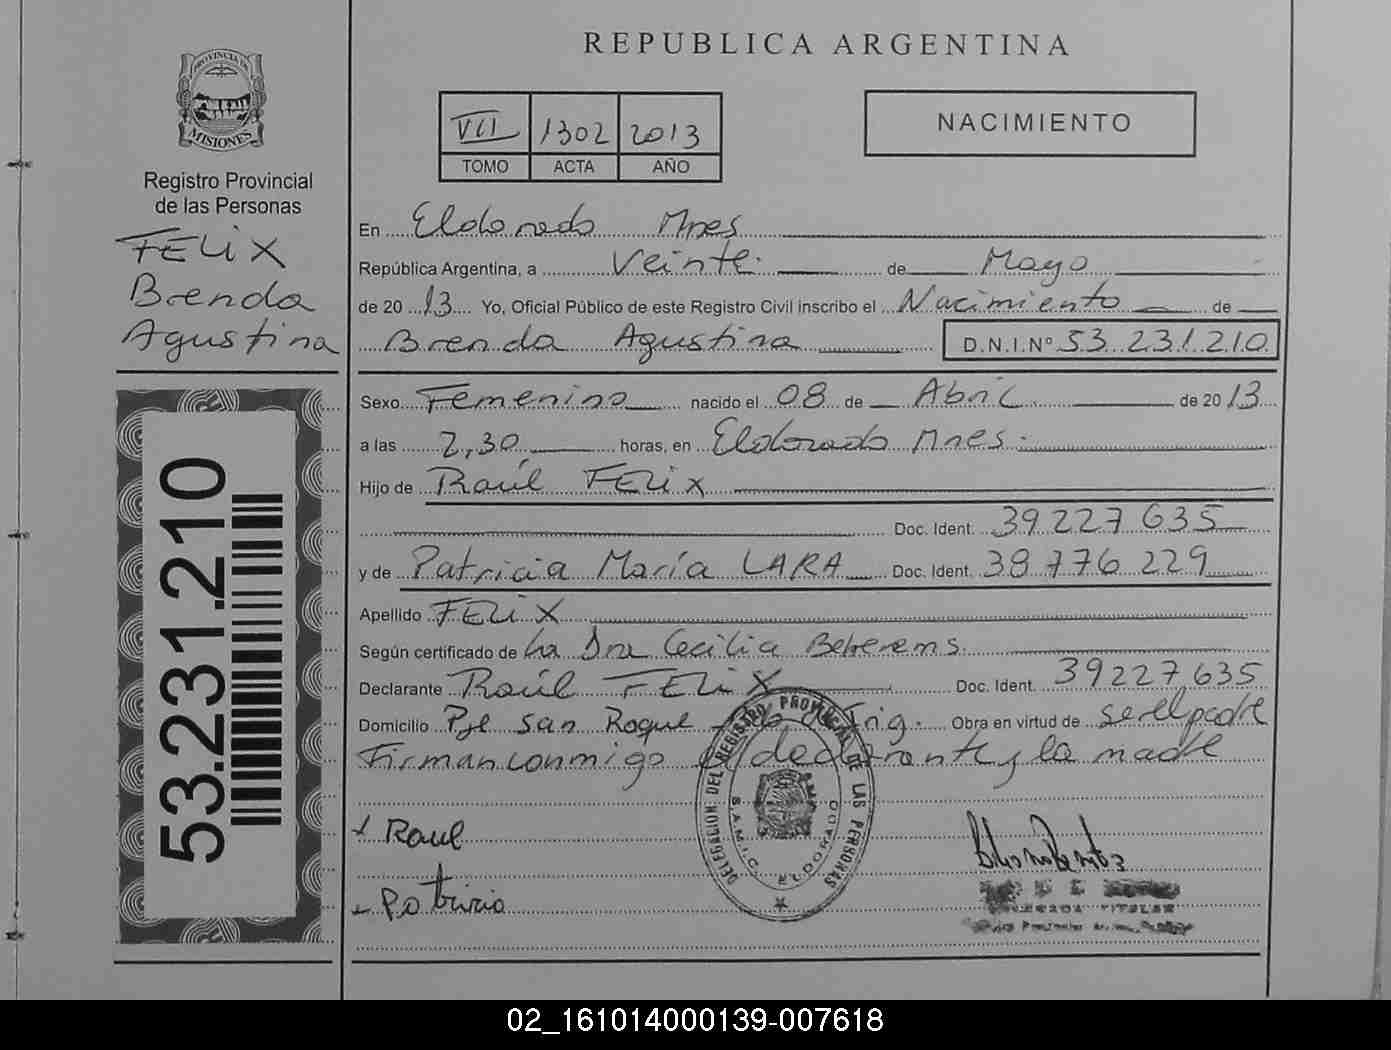 REPUBLICA ARGENTINA
PROVINCIA DE
MISIONES
Registro Provincial
de las Personas
FELIX
Brenda
Agustina
53.231.210
VII 1302 2013
TOMO ACTA AÑO
NACIMIENTO
En Eldorado Mnes
República Argentina, a Veinte de Mayo
de 2013 Yo, Oficial Público de este Registro Civil inscribo el Nacimiento de
Brenda Agustina D.N.I.Nº 53.231.210
Sexo Femenino nacido el 08 de Abril de 2013
a las 2,30 horas, en Eldorado Mnes.
Hijo de Raúl FELIX
Doc. Ident. 39227635
y de Patricia María LARA Doc. Ident. 38776229
Apellido FELIX
Según certificado de La Dra Cecilia
Declarante Raúl FELIX Doc. Ident. 39227635
Domicilio Pje San Roque Obra en virtud de ser el padre
Firman conmigo el declarante y la madre
DELEGACION DEL REGISTRO PROVINCIAL DE LAS PERSONAS
S.A.M.I.C. ELDORADO
Raul
Patricia
TITULAR
02_161014000139-007618